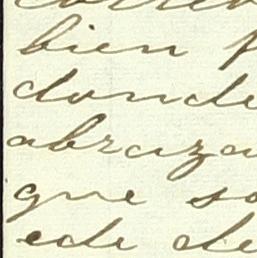 bien
donde
abraza
que so
ede de